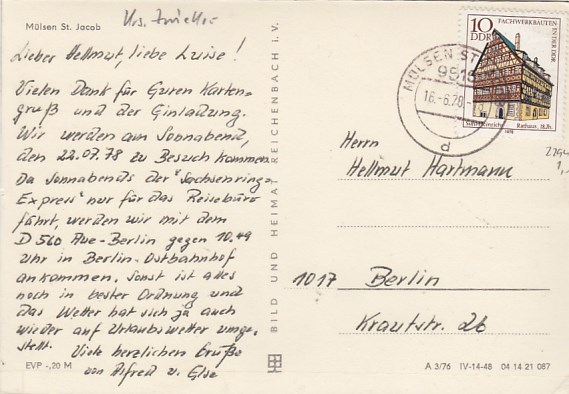 Mülsen St. Jacob
Lieber Hellmut, liebe Luise!
Vielen Dank für Euren Karten-
gruß und der Einladung.
Wir werden am Sonnabend,
den 22.07.78 zu Besuch kommen.
Da Sonnabends der "Sachsenring-
Express" nur für das Reisebüro
fährt, werden wir mit dem
D 560 Aue-Berlin gegen 10.49
Uhr in Berlin-Ostbahnhof
ankommen. Sonst ist alles
noch in bester Ordnung und
das Wetter hat sich ja auch
wieder auf Urlaubswetter umge-
stellt. Viele herzlichen Grüße
von Alfred u. Else
EVP -,20 M
BILD UND HEIMAT REICHENBACH I.V.
10
DDR
FACHWERKBAUTEN
IN DER DDR
Rathaus
1978
MÜLSEN ST.
d
Herrn
Hellmut Hartmann
1017 Berlin
Krautstr. 26
A 3/76 IV-14-48 04 14 21 087